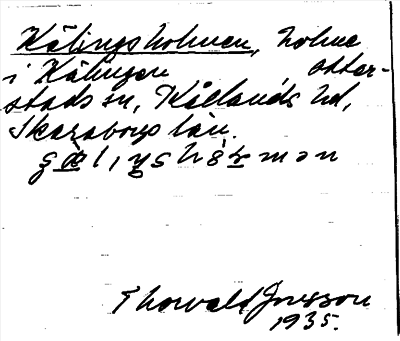 Kälingsholmen, holme
i Kälingen Otter-
stads sn, Kållands hd,
Skaraborgs län.
Thorvald Jonsson
1935.